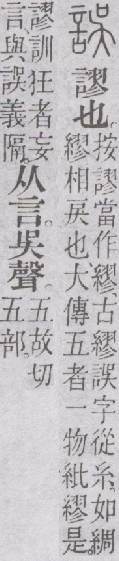 誤
謬也。
按謬當作繆、古繆誤字從糸、如綢
繆相戾也大傳五者一物紕繆是。
謬訓狂者妄
言與誤義隔。
从言吳聲。
五故切
五部。